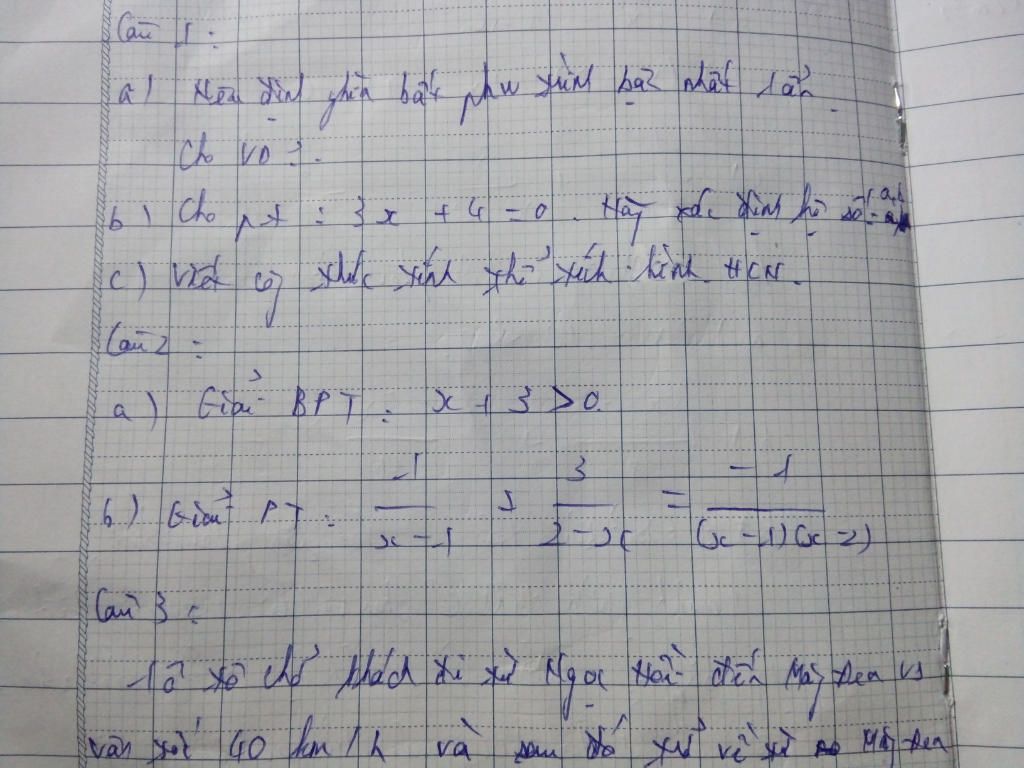 Câu 1:
a) Nêu định nghĩa bất phư trình bậc nhất 1 ẩn.
Cho VD?.
b) Cho pt : 3x + 4 = 0. Hãy xác định hệ số a,b
c) Viết cg thức tính thể tích hình HCN.
Câu 2 :
a) Giải BPT : x + 3 > 0.
b) Giải PT : 1/(x-1) + 3/(2-x) = -1/((x-1)(x-2))
Câu 3 :
1 ô tô chở khách đi từ Ngọc Hồi đến Măng Đen
vận tốc 40 km/h và sau đó trở về từ Măng Đen